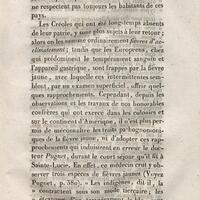 ne respectent pas toujours les habitants de ces
pays.
Les Créoles qui ont été long-temps absents
de leur patrie, y sont plus sujets à leur retour;
alors on les nomme ordinairement fièvres d'ac-
climatement; tandis que les Européens, chez
qui prédominent le tempérament sanguin et
l'appareil gastrique, sont frappés par la fièvre
jaune, avec laquelle ces intermittentes sem-
blent, par un examen superficiel, offrir quel-
ques rapprochements. Cependant, depuis les
observations et les travaux de nos honorables
confrères qui ont exercé dans les colonies et
sur le continent d'Amérique, il n'est plus per-
mis de méconnaître les traits pathognomoni-
ques de la fièvre jaune, ni d'adopter ces rap-
prochements qui induisirent en erreur le doc-
teur Puguet, durant le court séjour qu'il fit à
Sainte-Lucie. En effet, ce médecin crut y ob-
server trois espèces de fièvres jaunes (Voyez
Puguet, p. 380). « Les indigènes, dit-il, la
« contractent sous son mode tierçaire; les